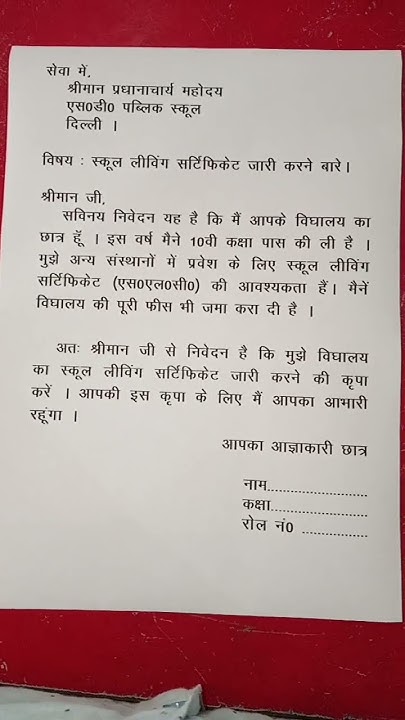 सेवा में,
श्रीमान प्रधानाचार्य महोदय
एस0डी0 पब्लिक स्कूल
दिल्ली ।
विषय : स्कूल लीविंग सर्टिफिकेट जारी करने बारे।
श्रीमान जी,
सविनय निवेदन यह है कि मैं आपके विघालय का
छात्र हूॅं । इस वर्ष मैने 10वी कक्षा पास की ली है ।
मुझे अन्य संस्थानों में प्रवेश के लिए स्कूल लीविंग
सर्टिफिकेट (एस0एल0सी0) की आवश्यकता हैं। मैनें
विघालय की पूरी फीस भी जमा करा दी है ।
अतः श्रीमान जी से निवेदन है कि मुझे विघालय
का स्कूल लीविंग सर्टिफिकेट जारी करने की कृपा
करें । आपकी इस कृपा के लिए मैं आपका आभारी
रहूंगा ।
आपका आज्ञाकारी छात्र
नाम........................
कक्षा.......................
रोल नं0 ................